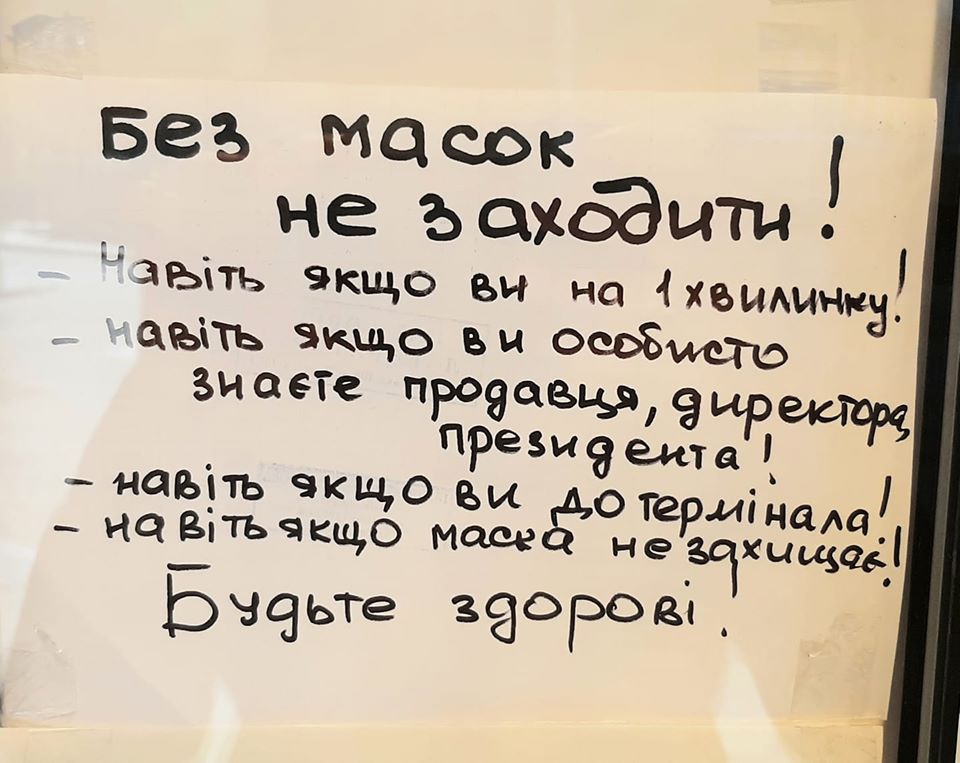 Без масок
не заходити!
- Навіть якщо ви на 1 хвилинку!
- навіть якщо ви особисто
знаєте продавця, директора,
президента!
- навіть якщо ви до термінала!
- навіть якщо маска не захищає!
Будьте здорові!